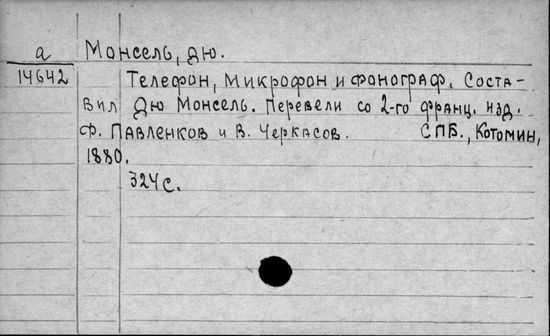 а Монсель, дю.
14642 Телефон, микрофон и фонограф. Соста-
вил Дю Монсель. Перевели со 2-го франц. изд.
Ф. Павленков и В. Черкасов. СПБ., Котомин,
1880.
324 с.